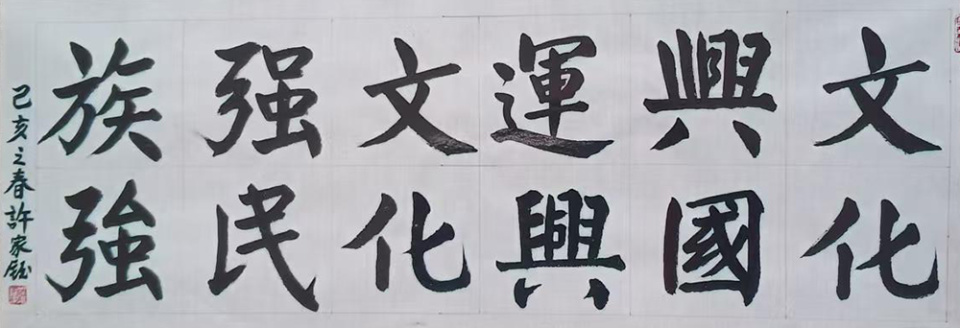 文化
興國
運興
文化
强民
族強
己亥之春許家鈺